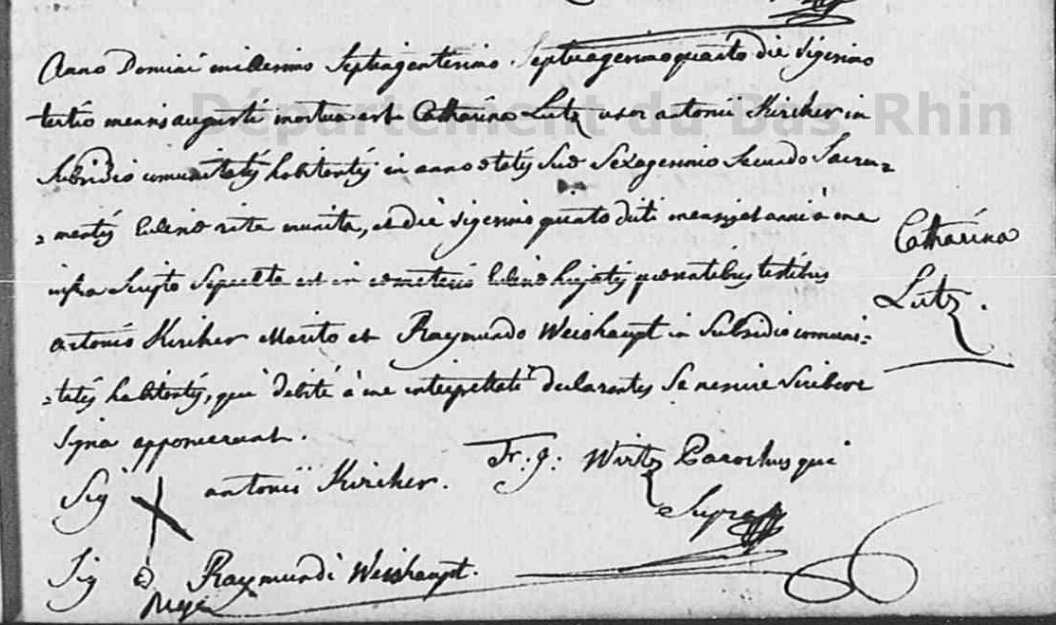 Anno Domini millesimo Septingentesimo Septuagesimo quarto die vigesimo
tertio mensis augusti mortua est Catharina Lutz uxor antonii Kircher in
Subsidio comunitatis habitantis in anno ætatis Suæ Sexagesimo Secundo Sacra=
=mentis Ecclesiæ rite munita, et die vigesimo quarto dicti mensis et anni à me
infra Scripto Sepulta est in cœmeterio Ecclesiæ hujatis præsentibus testibus
antonio Kircher Marito et Raymundo Weishaupt in Subsidio comuni=
=tatis habitantis, qui debitè à me interpellati declarantes Se nescire Scribere
Signa apposuerunt.
Sig X antonii Kircher. Fr. J: Wirtz Parochus qui
Supra
Sig Raymundi Weishaupt.
Catharina
Lutz.
Département du Bas Rhin